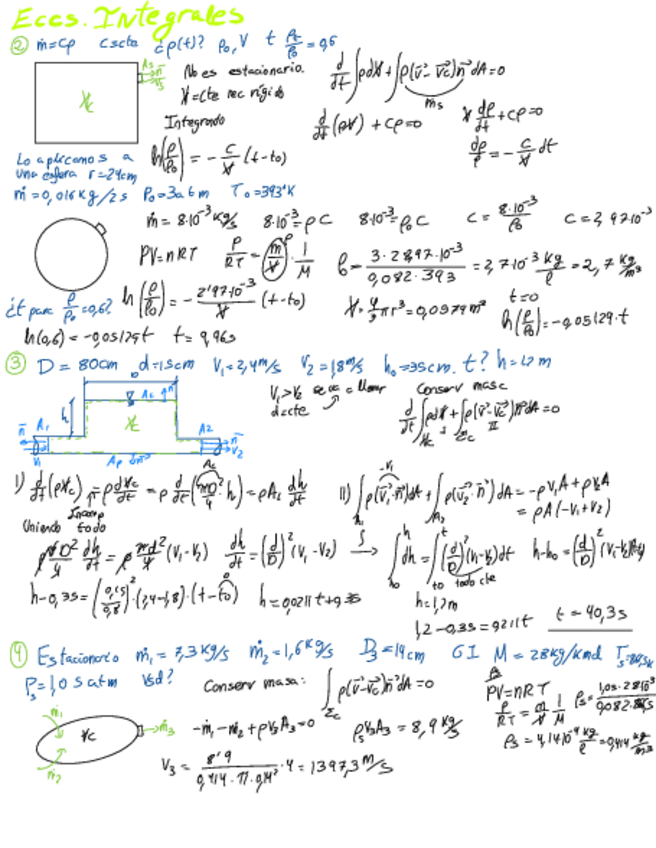 Eccs. Integrales
② ṁ=Cρ C=cte ¿ρ(t)? ρ₀, V t ρt/ρ₀ = 0,6
No es estacionario.
V=cte rec rígido
d/dt ∫ρdV + ∫ρ(v̄-v̄c)n̄ dA=0
ṁs
Integrando
d/dt (ρV) + Cρ=0
V dρ/dt + Cρ=0
ln(ρ/ρ₀) = - C/V (t-t₀)
dρ/ρ = - C/V dt
Lo aplicamos a
una esfera r=24cm
ṁ=0,016kg/2s P₀=3atm T₀=393°K
ṁ= 8·10⁻³ kg/s 8·10⁻³=ρC 8·10⁻³=ρ₀C C= 8·10⁻³/ρ₀ C=2,97·10⁻³
PV=nRT P/RT = m/V · 1/M ρ= 3·28,97·10⁻³/0,082·393 = 2,7·10⁻³ kg/l = 2,7 kg/m³
¿t para ρ/ρ₀=0,6? ln(ρ/ρ₀) = - 2'97·10⁻³/V (t-t₀) V= 4/3 πr³=0,0579m³ t=0
ln(ρ/ρ₀)=-0,05129·t
ln(0,6) = -0,05129t t= 9,96s
③ D = 80cm d=15cm V₁=2,4m/s V₂=1,8m/s h₀=35cm. t? h=1,2m
V₁>V₂ se va a llenar
d=cte
Conserv masa
d/dt ∫ρdV + ∫ρ(v̄-v̄c)n̄dA=0
Vc I Σc II
h A₁ A₂ n̄ V₁ V₂ Vc
I) d/dt(ρVc) = ρ dVc/dt = ρ d/dt (πD²/4 · h) = ρAc dh/dt
Incomp
II) ∫ρ(v̄₁·n̄)dA + ∫ρ(v̄₂·n̄)dA = -ρV₁A + ρV₂A
= ρA(-V₁+V₂)
Uniendo todo
ρ πD²/4 dh/dt = ρ πd²/4 (V₁-V₂) dh/dt = (d/D)² (V₁-V₂) → ∫dh = ∫(d/D)²(V₁-V₂)dt h-h₀ = (d/D)²(V₁-V₂)(t-t₀)
todo cte
h-0,35 = (0,15/0,8)² · (2,4-1,8) · (t-t₀) h = 0,0211t+0,35
h=1,2m
1,2-0,35=0,0211t t= 40,3s
④ Estacionario ṁ₁ = 7,3 kg/s ṁ₂=1,6 kg/s D₃=14cm GI M = 28kg/kmol
Ps=1,05atm Vsd? Conserv masa: ∫ρ(v̄-v̄c)n̄dA=0
Σc
PV=nRT
P/RT = m/V · 1/M
-ṁ₁-ṁ₂+ρV₃A₃=0 ρsV₃A₃ = 8,9 kg/s
ρs = 4,14·10⁻⁴ kg/l = 0,414 kg/m³
ṁ₁ Vc ṁ₃
ṁ₂
V₃ = 8'9/0,414·π·0,14² · 4 = 1397,3 m/s